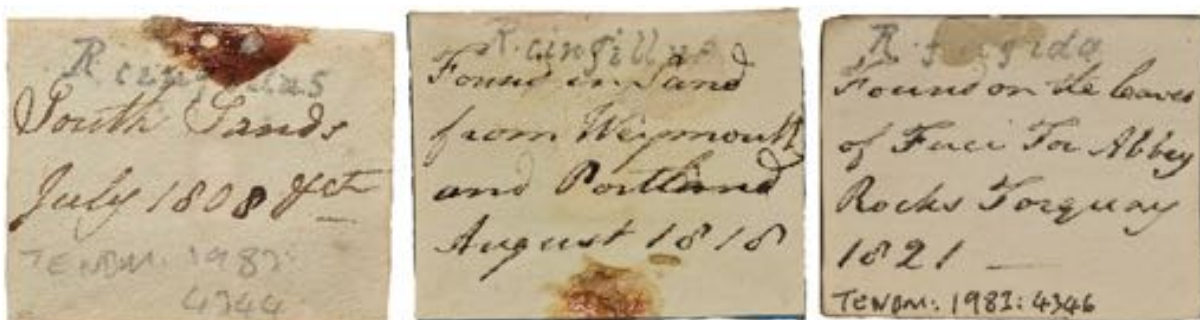 R. cingillus
South Sands
July 1808 &ct
TENBM: 1983:
4344
R. cingillus
Found in Sand
from Weymouth
and Portland
August 1818
R. fulgida
Found on the leaves
of Fuci Tor Abbey
Rocks Torquay
1821 —
TENBM: 1983: 4346